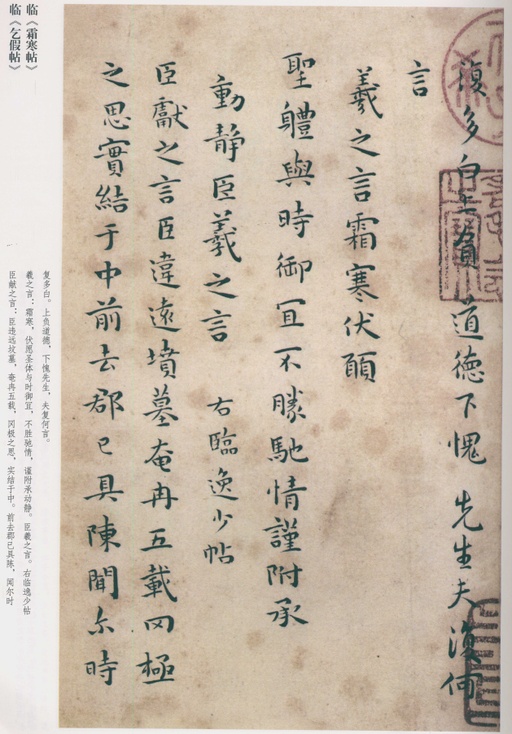 復多白上負道德下愧先生夫復何
言
羲之言霜寒伏願
聖軆與時御冝不勝馳情謹附承
動靜臣羲之言 右臨逸少帖
臣獻之言臣違遠墳墓奄冉五載罔極
之思實結于中前去郡已具陳聞尔時
临《霜寒帖》
临《乞假帖》
复多白。上负道德，下愧先生，夫复何言。
羲之言：霜寒，伏愿圣体与时御宜，不胜驰情，谨附承动静。臣羲之言。右临逸少帖
臣献之言：臣违远坟墓，奄冉五载，罔极之思，实结于中。前去郡已具陈，闻尔时